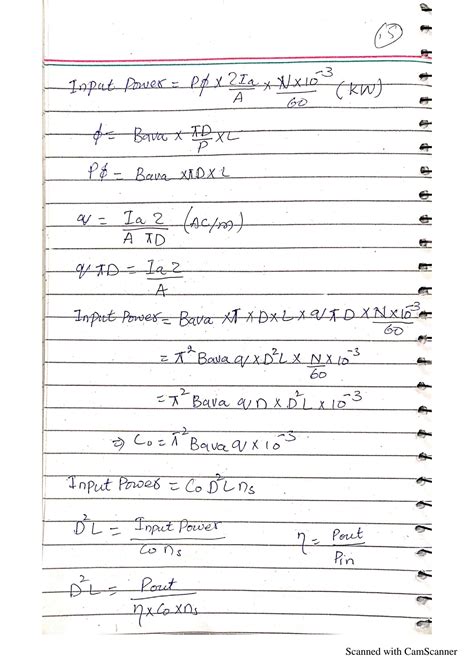 15
Input Power = Pϕ × 2Ia/A × N×10⁻³/60 (KW)
ϕ = Bava × πD/P × L
Pϕ = Bava × πD × L
q = Ia 2/A πD (AC/m)
q πD = Ia 2/A
Input Power = Bava × π × D × L × q π D × N×10⁻³/60
= π² Bava q × D²L × N × 10⁻³/60
= π² Bava q n × D²L × 10⁻³
⇒ Co = π² Bava q × 10⁻³
Input Power = Co D²L ns
D²L = Input Power/Co ns η = Pout/Pin
D²L = Pout/η × Co × ns
Scanned with CamScanner